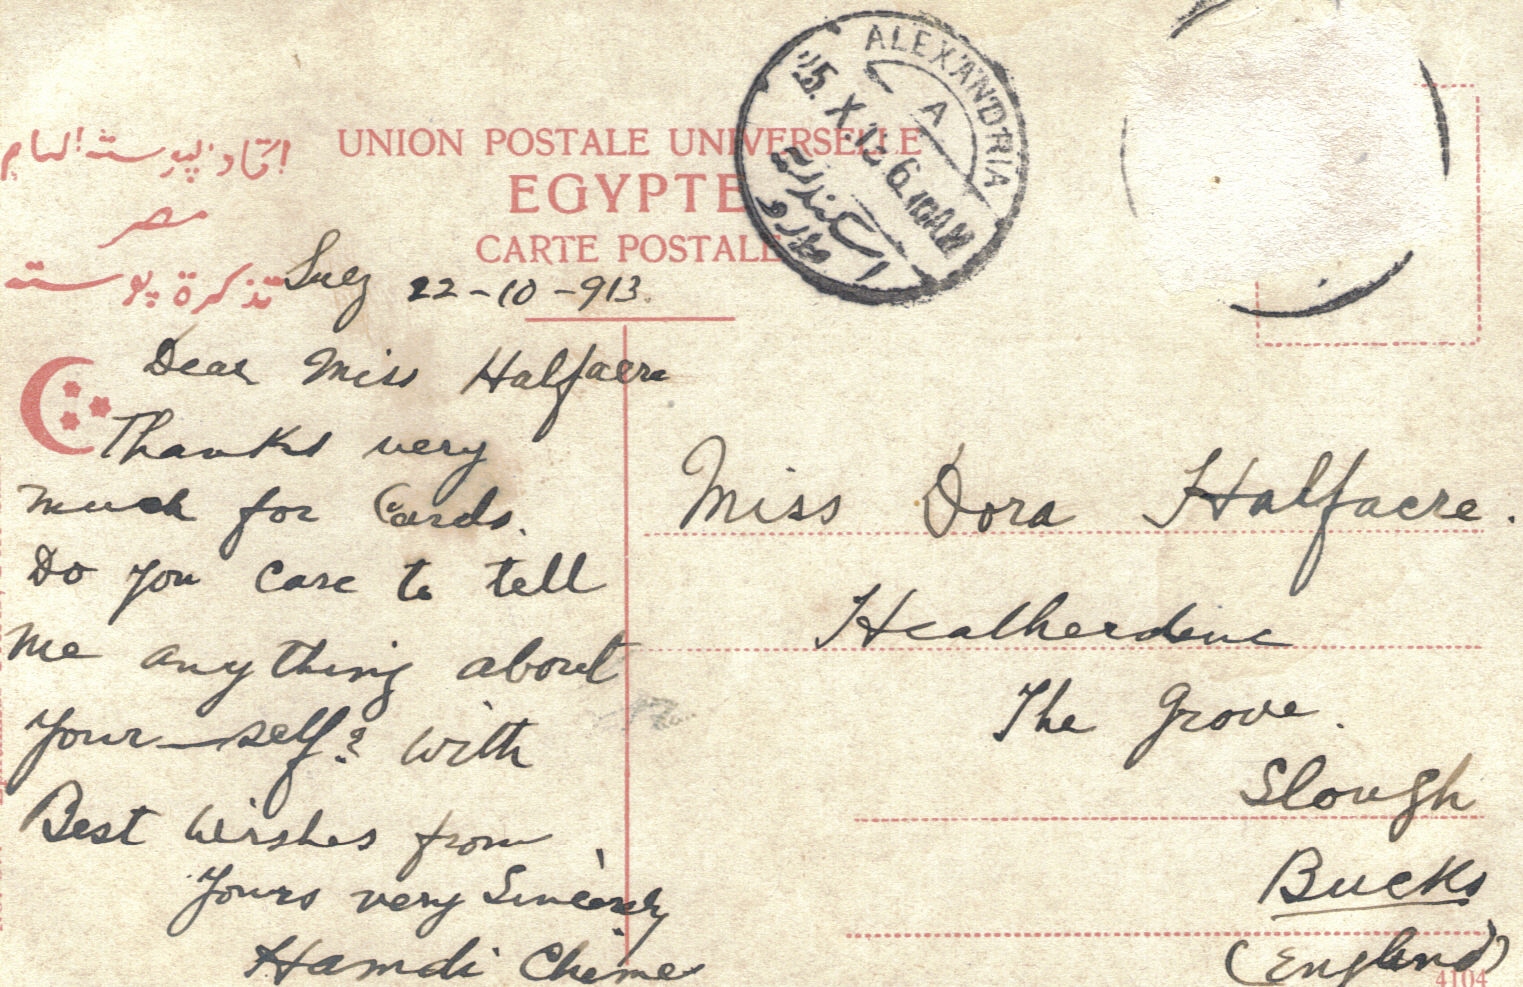 اتحاد پوسته العام
مصر
تذكرة پوسته
UNION POSTALE UNIVERSELLE
EGYPTE
CARTE POSTALE
ALEXANDRIA
A
25.X.13 6.10AM
اسكندرية
Suez 22-10-913.
Dear Miss Halfacre
Thanks very
much for Cards.
Do you care to tell
me any thing about
your-self? with
Best wishes from
Yours very Sincerely
Hamdi Cheme
Miss Dora Halfacre.
Heatherdene
The Grove.
Slough
Bucks
(England)
4104